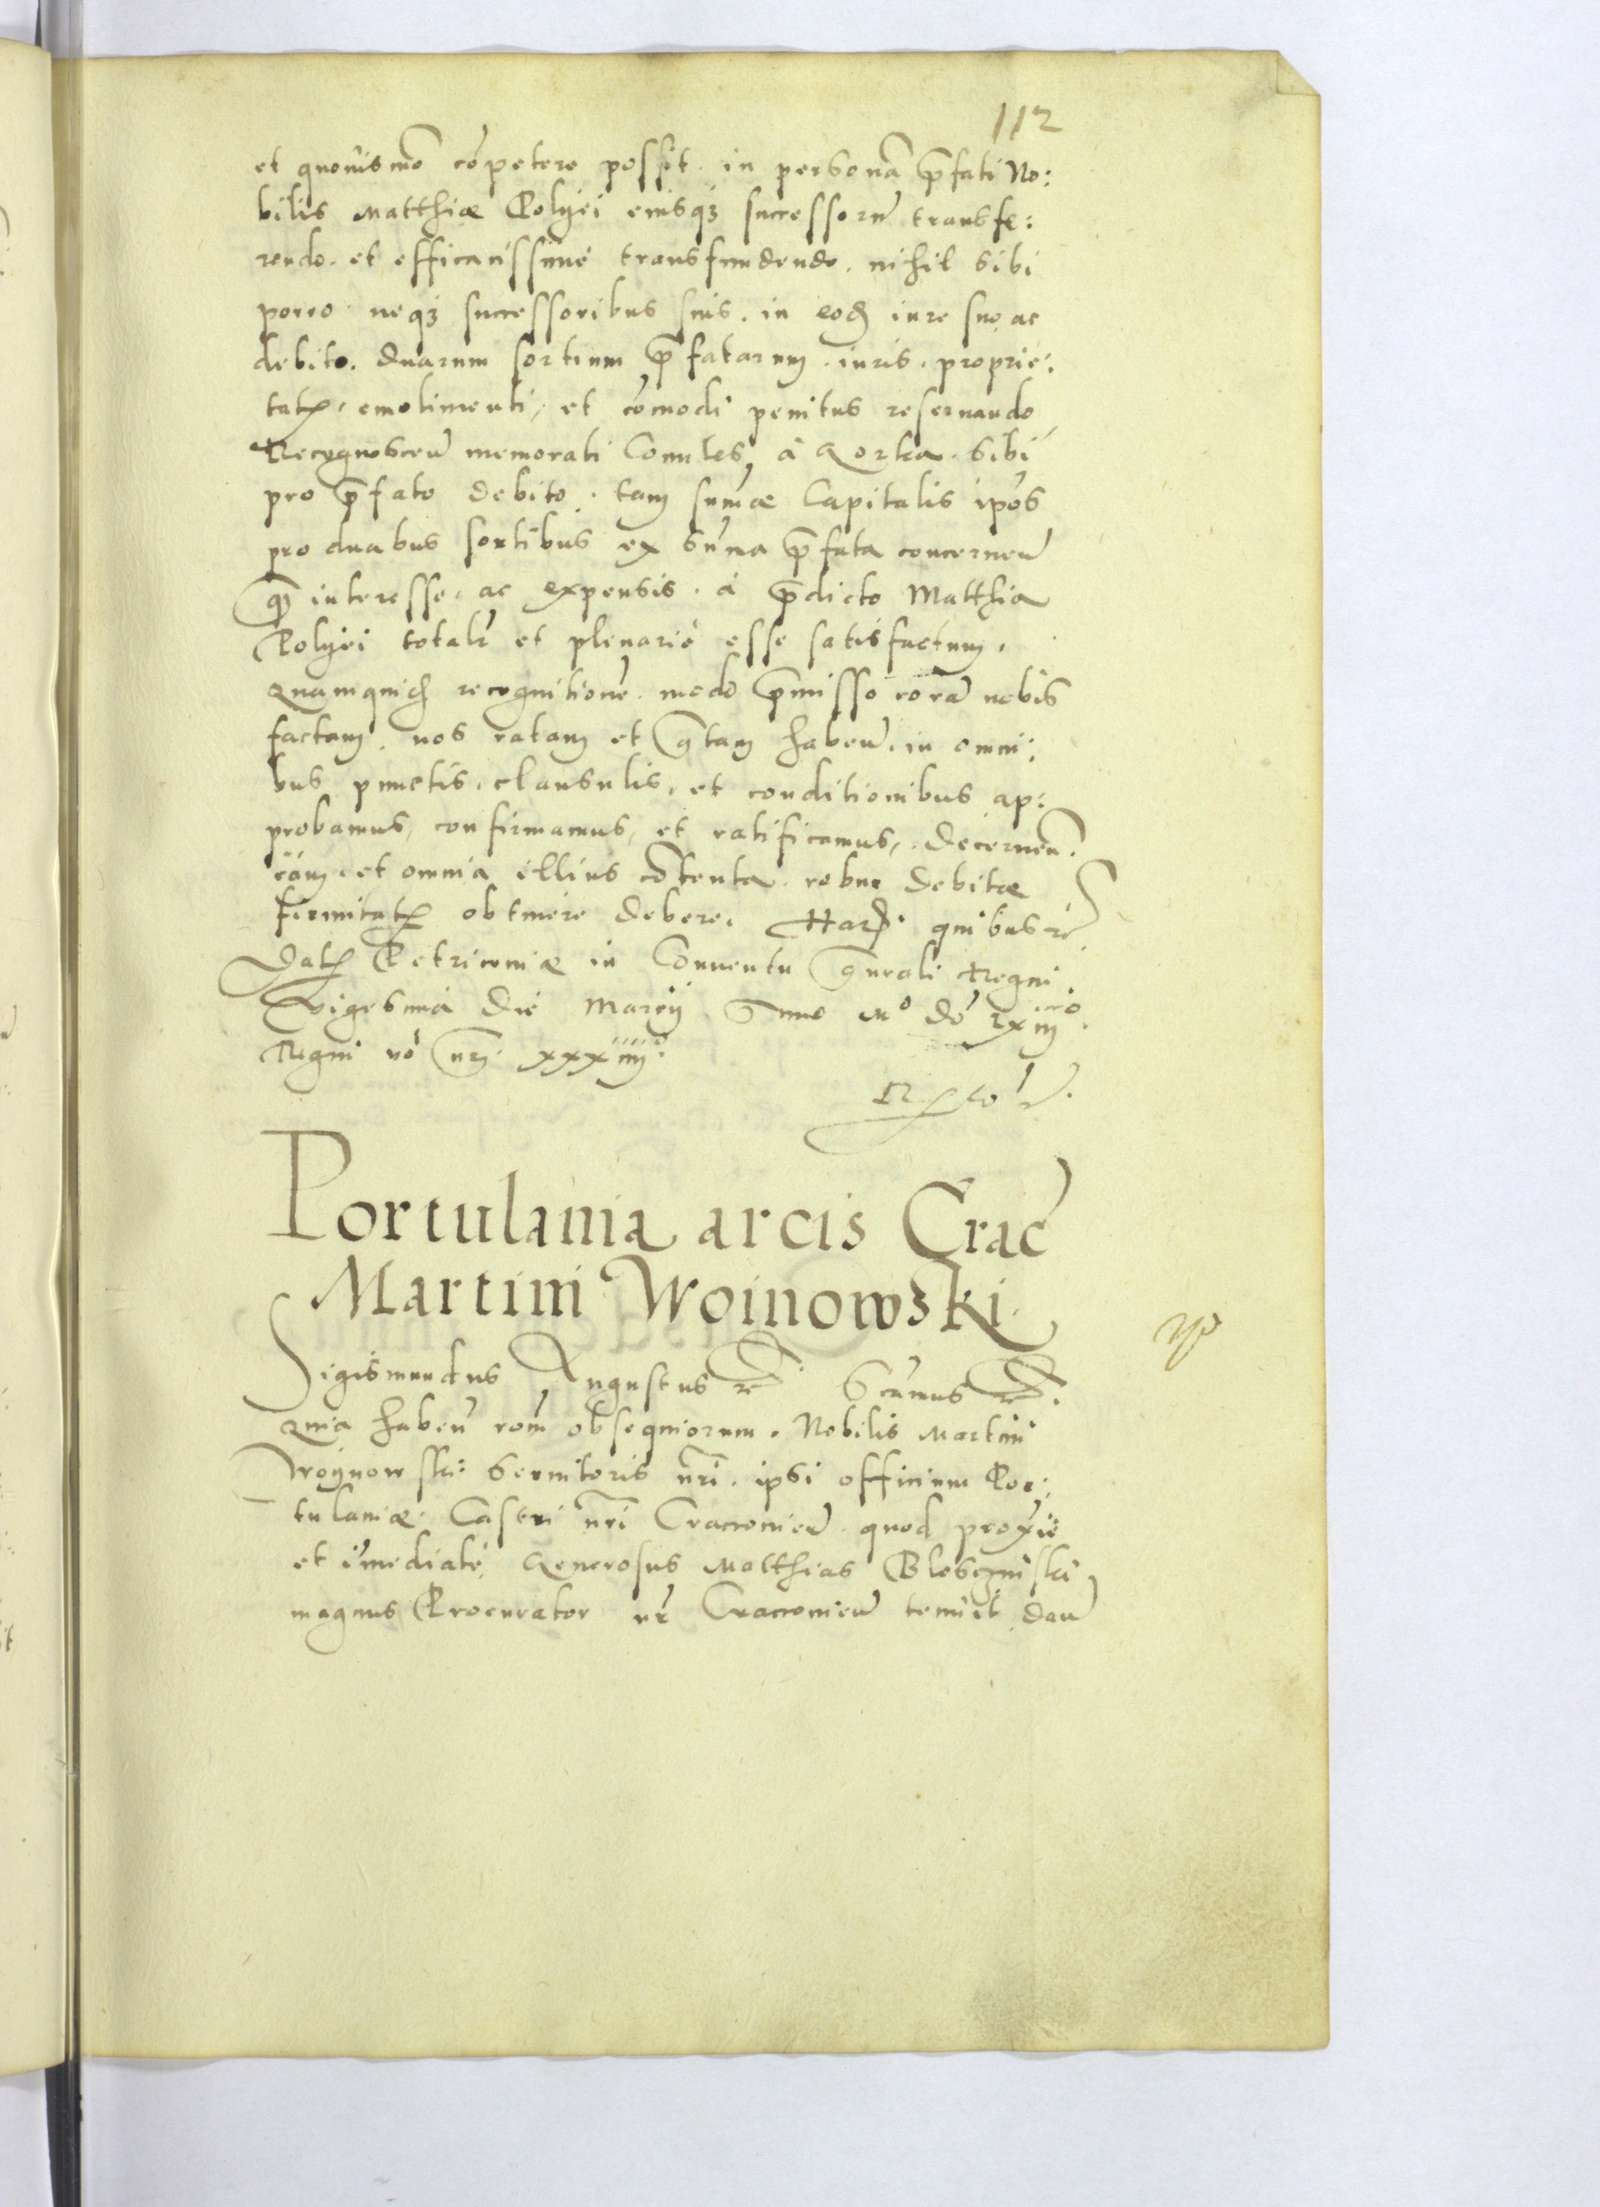 112
et quouismo cōpetere possit in personā p̄fati No:
bilis Matthiæ Polyei eiusq3 successorū transfe:
rendo. et efficacissime transfundendo. nihil sibi
porro neq3 successoribus suis. in eod iure suo ac
debito. duarum sortium p̄fatarum. iuris. proprie:
tatꝭ, emolimenti, et cōmodi penitus reseruando
Recognoscen̄ memorati Comites à Gorka. sibi
pro p̄fato debito. tam sum̄æ Capitalis ip̄os
pro duabus sortibus ex sum̄a p̄fata concernen̄
q̄ interesse. ac expensis. à p̄dicto Matthia
Polyei totalr̄ et plenariè esse satisfactum.
Quamquid recognitionē. modo p̄misso corā nobis
factam. nos ratam et g̃tam haben̄. in omni:
bus punctis, clausulis, et conditionibus ap:
probamus, confirmamus, et ratificamus, decernen̄.
eam. et omnia illius cōtenta. robur debitæ
firmitatꝭ obtinere debere. Harꝝ quibus rē
Datꝭ Petricouiæ in Conuentu g̃nrali Regni
Vigesima die Marcij Anno Mº Dº Lxiijº.
Regni vō nr̄i xxxiiijº.
Portulania arcis Crac̄
Martini Woinowski.
Sigismundus Augustus rē Sc̄umus rē.
Quia haben̄ rōm obsequiorum. Nobilis Martini
Woynowski seruitoris nr̄i. ipsi officium Por:
tulaniæ Castri nr̄i Cracouien̄ quod proxīe
et im̄ediatè Generosus Matthias
magnus Procurator nr̄ Cracouien̄ tenuit dan̄